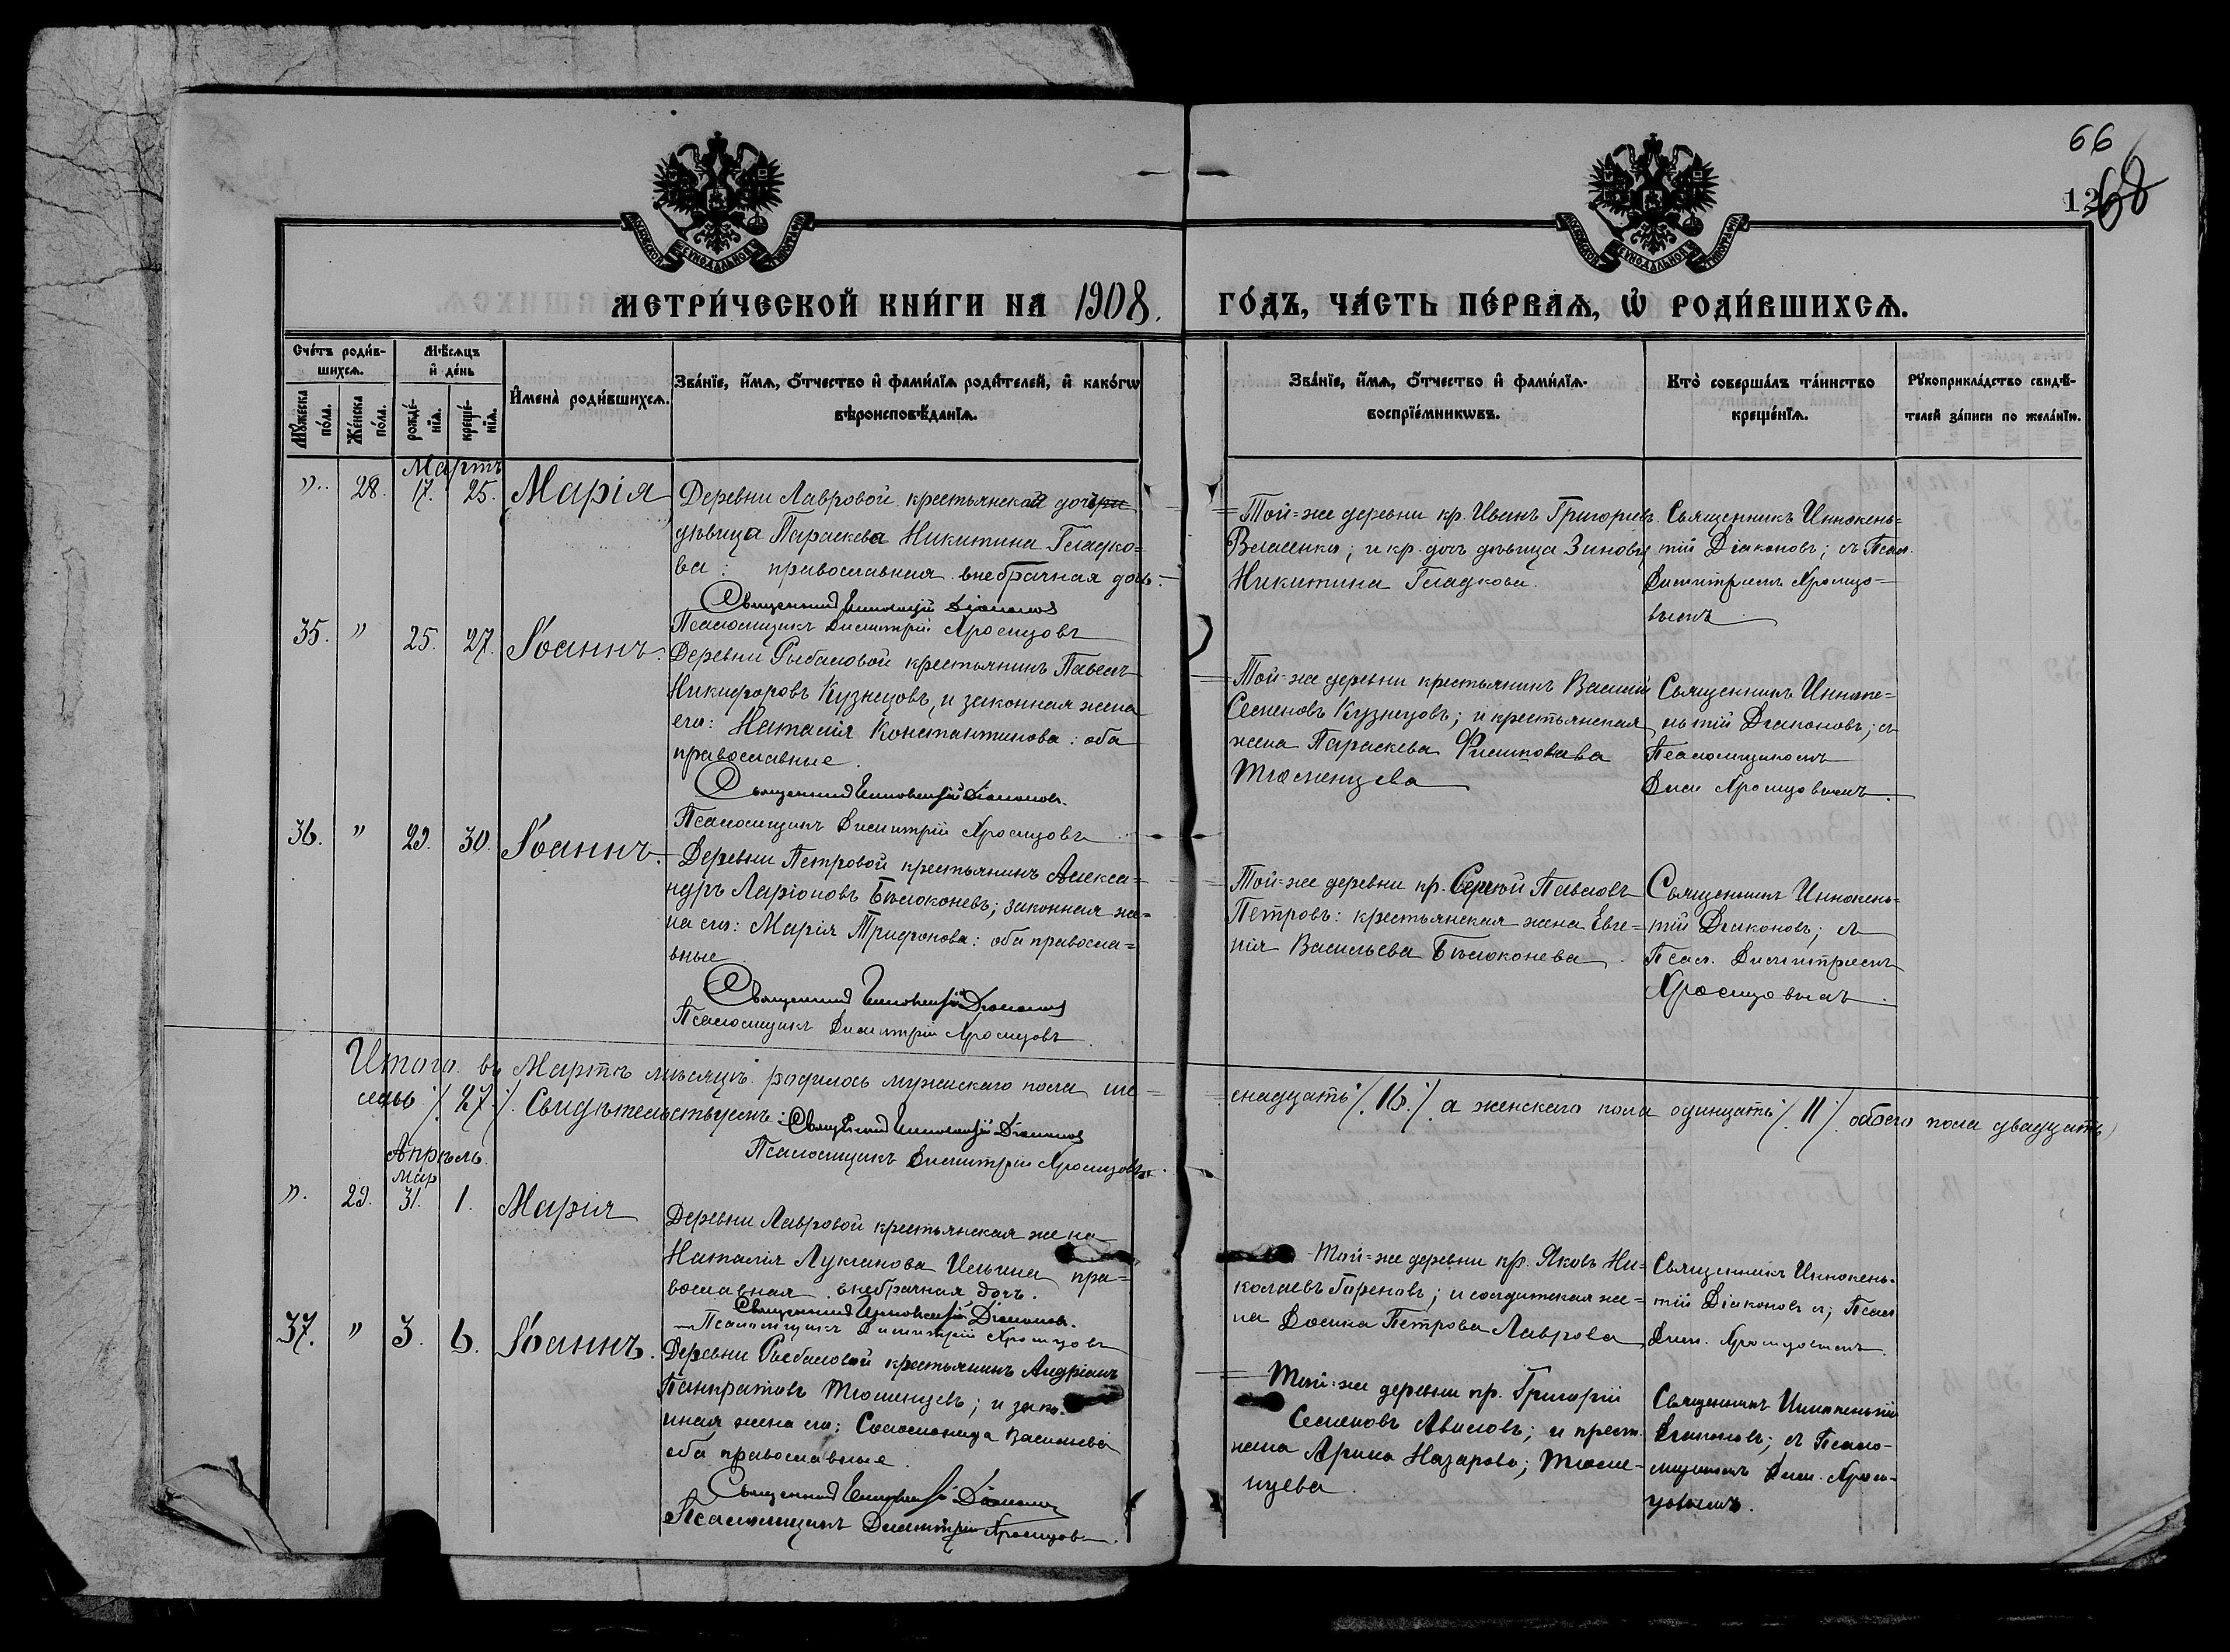 66
1268
МЕТРИ́ЧЕСКОЙ КНИ́ГИ НА 1908.
ГО́ДЪ, ЧА́СТЬ ПЕ́РВАѦ, Ѡ҆ РОДИ́ВШИХСѦ.
Сче́тъ роди́в-
шихсѧ.
Мѣ́сѧцъ
и҆ де́нь
Мꙋ́жеска по́ла.
Же́нска по́ла.
рожде́-
нїѧ.
креще́-
нїѧ.
И҆мена̀ роди́вшихсѧ.
Зва́нїе, и҆́мѧ, ѻ҆́тчество и҆ фами́лїѧ роди́телей, и҆ како́гѡ
вѣроисповѣ́данїѧ.
Зва́нїе, и҆́мѧ, ѻ҆́тчество и҆ фами́лїѧ
воспрїе́мникѡвъ.
Кто̀ соверша́лъ та́инство
креще́нїѧ.
Рꙋкоприкла́дство свидѣ́-
телей за́писи по жела́нїю.
Мартъ
" 28. 17. 25. Марія
Деревни Лавровой крестьянской дочери
дѣвица Параскева Никитина Гладко=
ва: православная внебрачная дочь.
Священникъ Иннокентій Діаконовъ
Псаломщикъ Димитрій Хромцовъ
Той=же деревни кр. Иванъ Григорьев.
; и кр. дочь дѣвица Зиновія
Никитина Гладкова.
Священникъ Иннокень=
тій Діаконовъ; съ Псал.
Димитріемъ Хромцо=
вымъ
35. " 25. 27. Іоаннъ.
Деревни Рыбаловой крестьянинъ Павелъ
Никифоровъ Кузнецовъ, и законная жена
его: Наталія Константинова: оба
православные.
Священникъ Иннокентій Діаконовъ.
Псаломщикъ Димитрій Хромцовъ
Той=же деревни крестьянинъ Василій
Семеновъ Кузнецовъ; и крестьянская
жена Параскева
Тюменцева
Священникъ Иннокe=
нтій Діаконовъ; съ
Псаломщикомъ
Дим. Хромцовымъ.
36. " 29. 30. Іоаннъ.
Деревни Петровой крестьянинъ Алекса=
ндръ Ларіоновъ Бѣлоконевъ; законная же=
на его: Марія Трифонова: оба правосла=
вные.
Священникъ Иннокентій Діаконовъ
Псаломщикъ Димитрій Хромцовъ.
Той=же деревни кр. Сергѣй Павловъ
Петровъ: крестьянская жена Евге=
нія Васильева Бѣлоконева.
Священникъ Иннокень=
тій Діаконовъ; съ
Псал. Димитріемъ
Хромцовымъ.
Итого въ Мартѣ мѣсяцѣ родилось мужескаго пола ше=
снадцать /.16./ а женскаго пола одинцать /.11/. обоего пола двадцать
семь /.27./. Свидѣтельствуемъ: Священникъ Иннокентій Діаконовъ
Псаломщикъ Димитрій Хромцовъ.
Апрѣль.
мар
". 29. 31. 1. Марія
Деревни Лавровой крестьянская жена
Наталія Лукіанова Ильина пра=
вославная внебрачная дочь.
Священникъ Иннокентій Діаконовъ.
Псаломщикъ Димитрій Хромцовъ
Той=же деревни кр. Яковъ Ни=
колаевъ Гореновъ; и солдатская же=
на Домна Петрова Лаврова
Священникъ Иннокень=
тій Діаконовъ съ; Псал
Дим. Хромцовымъ.
37. " 3. 6. Іоаннъ.
Деревни Рыбаловой крестьянинъ Андріанъ
Панкратовъ Тюменцевъ; и зако=
нная жена его: Соломонида Васильева
оба православные.
Священникъ Иннокентій Діаконовъ
Псаломщикъ Димитрій Хромцовъ.
Той=же деревни кр. Григорій
Семеновъ Авиловъ; и крест.
жена Арина Назарова; Тюме=
нцева.
Священникъ Иннокентій
Діаконовъ; съ Псало=
мщикомъ Дим. Хром=
цовымъ.